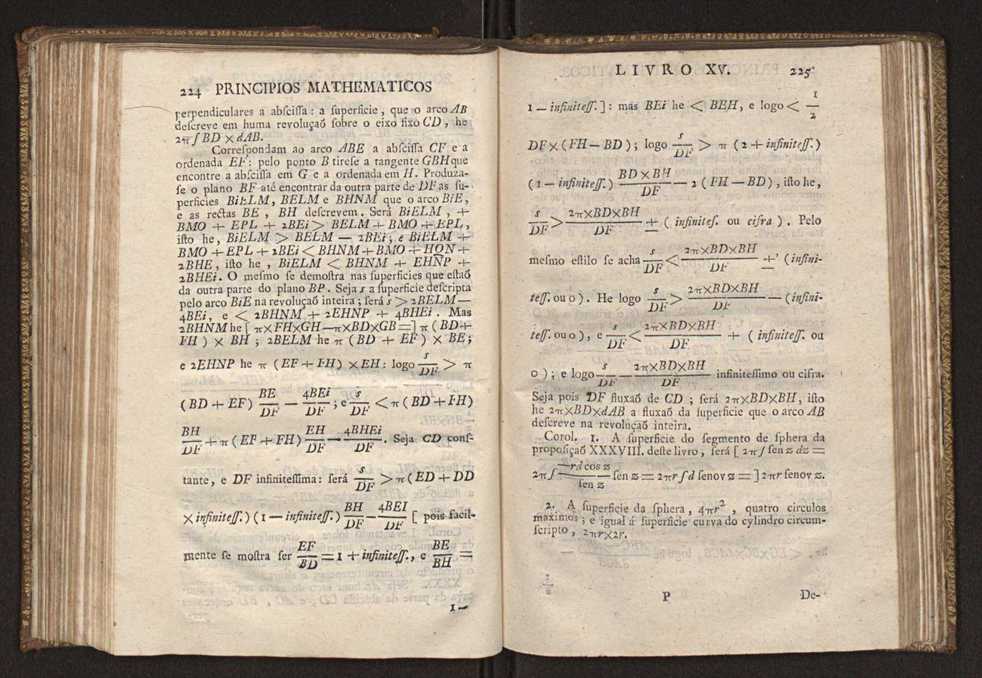 224 PRINCIPIOS MATHEMATICOS
perpendiculares a abſciſſa: a ſuperficie, que o arco AB
deſcreve em huma revoluçaõ ſobre o eixo fixo CD, he
2π ∫ BD × dAB.
Correſpondam ao arco ABE a abſciſſa CF e a
ordenada EF: pelo ponto B tireſe a tangente GBH que
encontre a abſciſſa em G e a ordenada em H. Produza-
ſe o plano BF até encontrar da outra parte de DF as ſu-
perficies BiELM, BELM e BHNM que o arco BiE,
e as rectas BE, BH deſcrevem. Será BiELM, +
BMO + EPL + 2BEi > BELM + BMO + EPL,
iſto he, BiELM > BELM — 2BEi; e BiELM +
BMO + EPL + 2BEi < BHNM + BMO + HON +
2BHE, iſto he, BiELM < BHNM + EHNP +
2BHEi. O meſmo ſe demoſtra nas ſuperficies que eſtaõ
da outra parte do plano BP. Seja s a ſuperficie deſcripta
pelo arco BiE na revoluçaõ inteira; ſerá s > 2BELM —
4BEi, e < 2BHNM + 2EHNP + 4BHEi. Mas
2BHNM he [ π×FH×GH—π×BD×GB=] π (BD+
FH) × BH; 2BELM he π (BD + EF) × BE;
e 2EHNP he π (EF + FH) × EH: logo s/DF > π
(BD + EF) BE/DF — 4BEi/DF; e s/DF < π (BD + FH)
BH/DF + π (EF + FH) EH/DF — 4BHEi/DF. Seja CD conſ-
tante, e DF infiniteſſima: ſerá s/DF > π (ED + DD
× infiniteſſ.) (1 — infiniteſſ.) BH/DF — 4BEI/DF [ pois facil-
mente ſe moſtra ſer EF/BD = 1 + infiniteſſ., e BE/BH =
1 —
LIVRO XV. 225
1 — infiniteſſ.]: mas BEi he < BEH, e logo < 1/2
DF × (FH — BD); logo s/DF > π (2 + infiniteſſ.)
(1 — infiniteſſ.) BD × BH/DF — 2 (FH — BD), iſto he,
s/DF > 2π×BD×BH/DF ± (infiniteſ. ou cifra). Pelo
meſmo eſtilo ſe acha s/DF < 2π×BD×BH/DF ± (infini-
teſſ. ou 0). He logo s/DF > 2π×BD×BH/DF — (infini-
teſſ. ou 0), e s/DF < 2π×BD×BH/DF + (infiniteſſ. ou
0); e logo s/DF — 2π×BD×BH/DF infiniteſſimo ou cifra.
Seja pois DF fluxaõ de CD; ſerá 2π×BD×BH, iſto
he 2π×BD×dAB a fluxaõ da ſuperficie que o arco AB
deſcreve na revoluçaõ inteira.
Corol. 1. A ſuperficie do ſegmento de ſphera da
propoſiçaõ XXXVIII. deſte livro, ſerá [ 2π ∫ ſen z dz =
2π ∫ —rd cos z/ſen z ſen z = 2πr ∫ d ſenov z = ] 2πr ſenov z.
2. A ſuperficie da ſphera, 4πr², quatro circulos
maximos; e igual á ſuperficie curva do cylindro circum-
ſcripto, 2πr×2r.
P De-